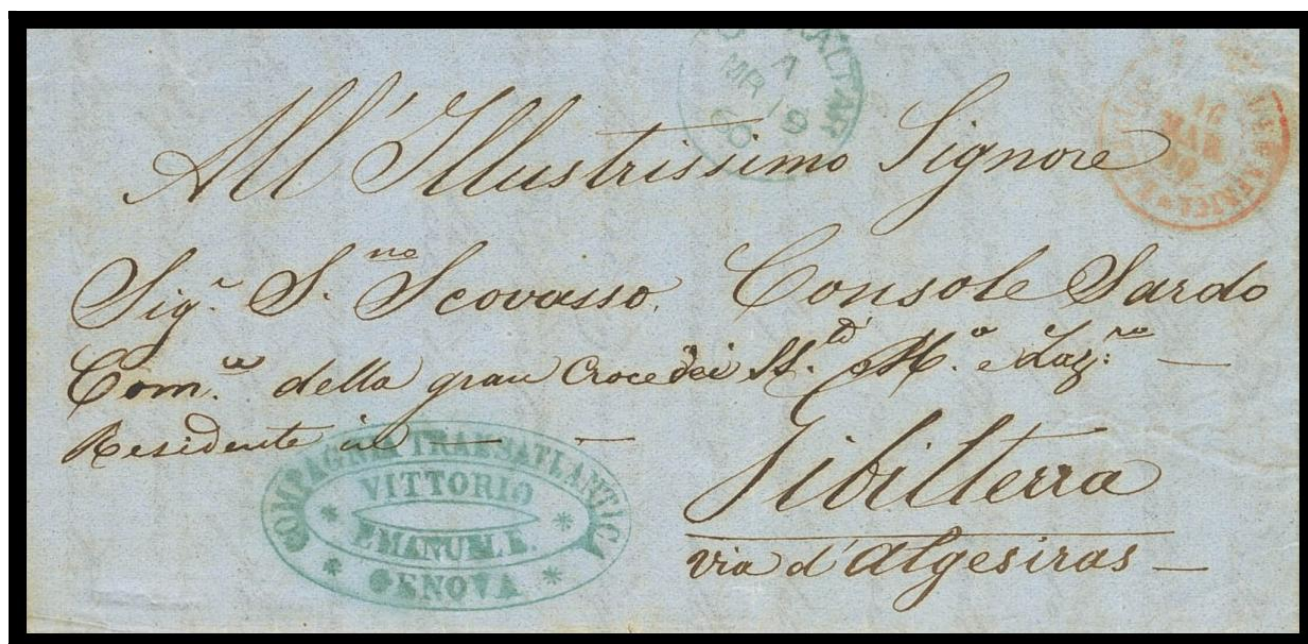 GIBRALTAR
A
MR 19
60
16
MAR
60
All' Illustrissimo Signore
Sigr. S.no Scovasso, Console Sardo
Com.e della gran Croce dei SS.ti M.o e Laz:ro —
Residente in — —
Gibilterra
via d'Algesiras —
COMPAGNIA TRANSATLANTICA
VITTORIO
EMANUELE
GENOVA